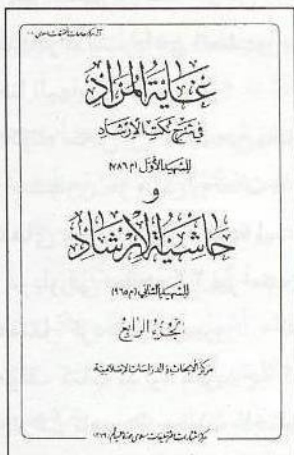 غاية المراد
في شرح نكت الإرشاد
للشهيد الأول (م ٧٨٦)
و
حاشية الإرشاد
للشهيد الثاني (م ٩٦٥)
الجزء الرابع
مركز الأبحاث والدراسات الإسلامية